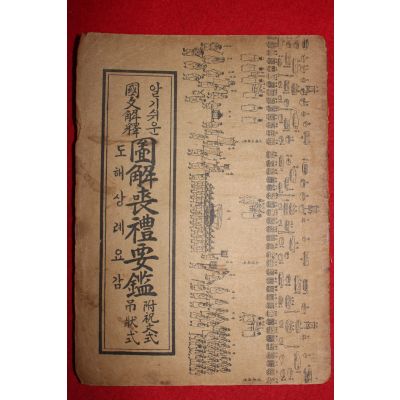 알기쉬운
國文解釋
圖解喪禮要鑑
도해상례요감
附祝文式
吊狀式